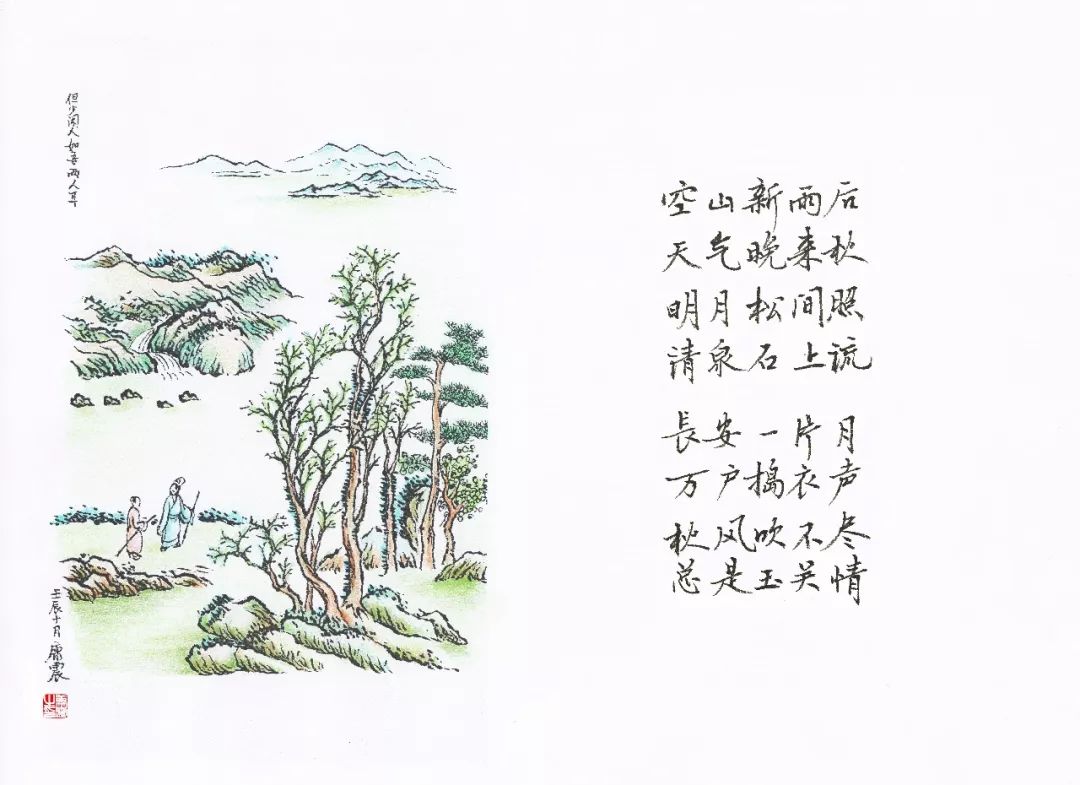 但少闲人如吾两人耳
壬辰十月康震
空山新雨后
天气晚来秋
明月松间照
清泉石上流
長安一片月
万户捣衣声
秋风吹不尽
总是玉关情